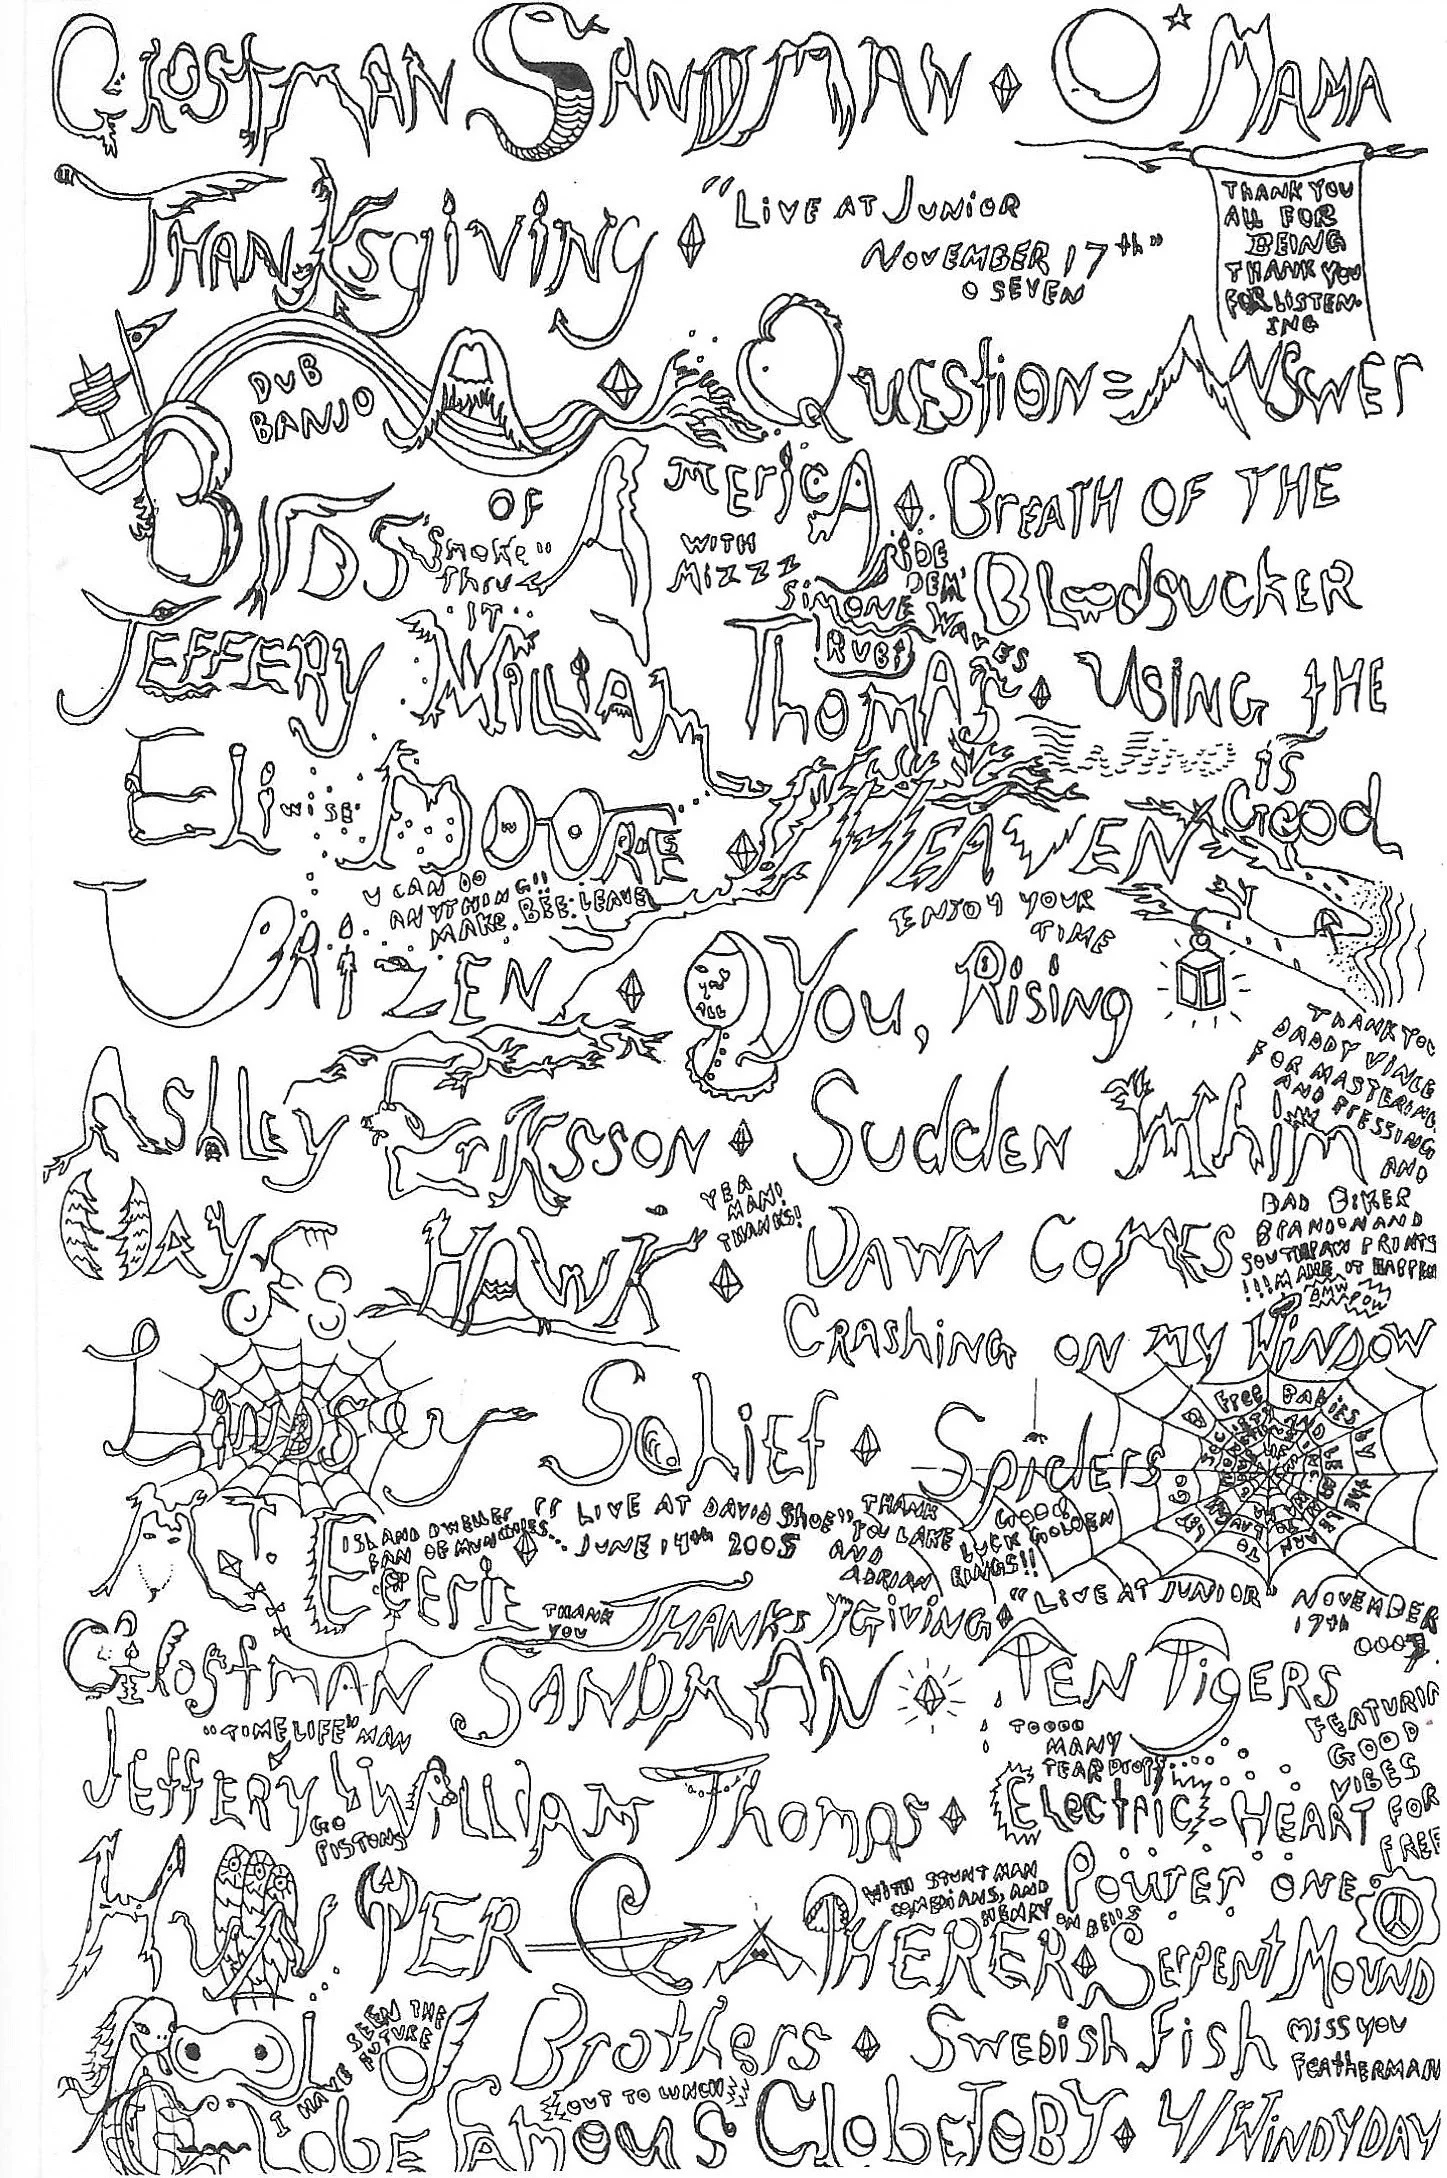 GHOSTMAN SANDMAN ♦ O MAMA
THANKSGIVING ♦ "LIVE AT JUNIOR
NOVEMBER 17th"
O SEVEN
THANK YOU
ALL FOR
BEING
THANK YOU
FOR LISTEN-
ING
DUB
BANJO
♦ QUESTION = ANSWER
BIRDS OF AMERICA ♦ BREATH OF THE
"SMOKE"
THRU
IT
WITH
MIZZZ
SIMONE
RUBI
RIDE
DEM
WAVES
BLOODSUCKER
JEFFERY WILLIAM THOMAS ♦ USING THE
ELI MOORE ♦ HEAVEN
WISE
IS
GOOD
U CAN DO
ANYTHING!!
MAKE. BEE. LEAVE
ENJOY YOUR
TIME
URIZEN ♦ YOU, RISING
THANK YOU
DADDY VINCE
FOR MASTERING
AND PRESSING
AND
BAD BIKER
BRANDON AND
SOUTHPAW PRINTS
!!!MAKE IT HAPPEN
BMW POW
ASHLEY ERIKSSON ♦ SUDDEN WHIM
WAYS OF HAWK ♦ DAWN COMES
YEA
MAN!
THANKS!
CRASHING ON MY WINDOW
LINDSAY SCHIEF ♦ SPIDERS
FREE BABIES BY THE
ISLAND DWELLER
FAN OF MUNCHIES...
"LIVE AT DAVID SHOE"
JUNE 14th 2005
THANK
YOU LAKE
AND
ADRIAN
GOOD
LUCK GOLDEN
RINGS!!
E.T. EEERIE
THANK
YOU
THANKSGIVING ♦ "LIVE AT JUNIOR" NOVEMBER
17th
0007
GHOSTMAN SANDMAN ♦ TEN TIGERS
"TIME LIFE" MAN
TOOOO
MANY
TEARDROPS
FEATURIN
GOOD
VIBES
FOR
FREE
JEFFERY WILLIAM THOMAS ♦ ELECTRIC-HEART
GO
PISTONS
POWER ONE
HUNTER-GATHERER ♦ SERPENT MOUND
WITH STUNTMAN
COMEDIANS, AND
HENRY ON BELLS
BROTHERS ♦ SWEDISH FISH
I HAVE SEEN THE
FUTURE
MISS YOU
FEATHERMAN
OUT TO LUNCH
GLOBE FAMOUS GLOBETOBY ♦ 4/WINDYDAY